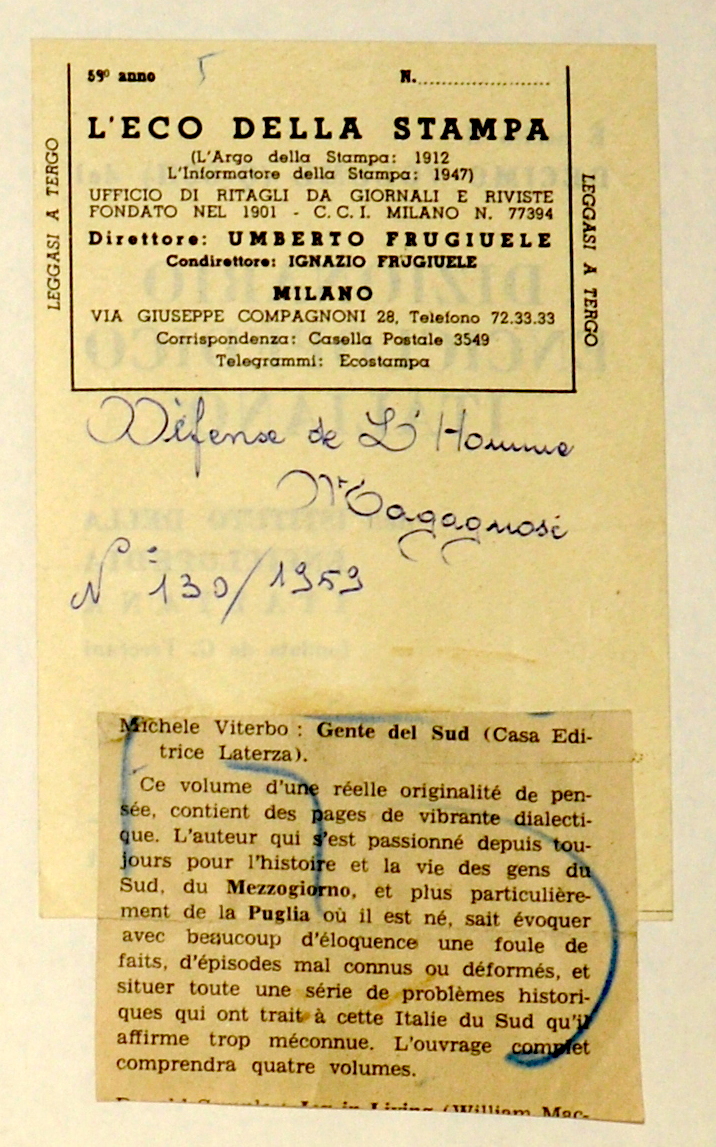 59º anno
N.
L'ECO DELLA STAMPA
(L'Argo della Stampa: 1912
L'Informatore della Stampa: 1947)
UFFICIO DI RITAGLI DA GIORNALI E RIVISTE
FONDATO NEL 1901 - C. C. I. MILANO N. 77394
Direttore: UMBERTO FRUGIUELE
Condirettore: IGNAZIO FRUGIUELE
MILANO
VIA GIUSEPPE COMPAGNONI 28, Telefono 72.33.33
Corrispondenza: Casella Postale 3549
Telegrammi: Ecostampa
LEGGASI A TERGO
LEGGASI A TERGO
Défense de L'Homme
Magagnosc
N° 130/1959
Michele Viterbo : Gente del Sud (Casa Edi-
trice Laterza).
Ce volume d'une réelle originalité de pen-
sée, contient des pages de vibrante dialecti-
que. L'auteur qui s'est passionné depuis tou-
jours pour l'histoire et la vie des gens du
Sud, du Mezzogiorno, et plus particulière-
ment de la Puglia où il est né, sait évoquer
avec beaucoup d'éloquence une foule de
faits, d'épisodes mal connus ou déformés, et
situer toute une série de problèmes histori-
ques qui ont trait à cette Italie du Sud qu'il
affirme trop méconnue. L'ouvrage complet
comprendra quatre volumes.
(William Mac-